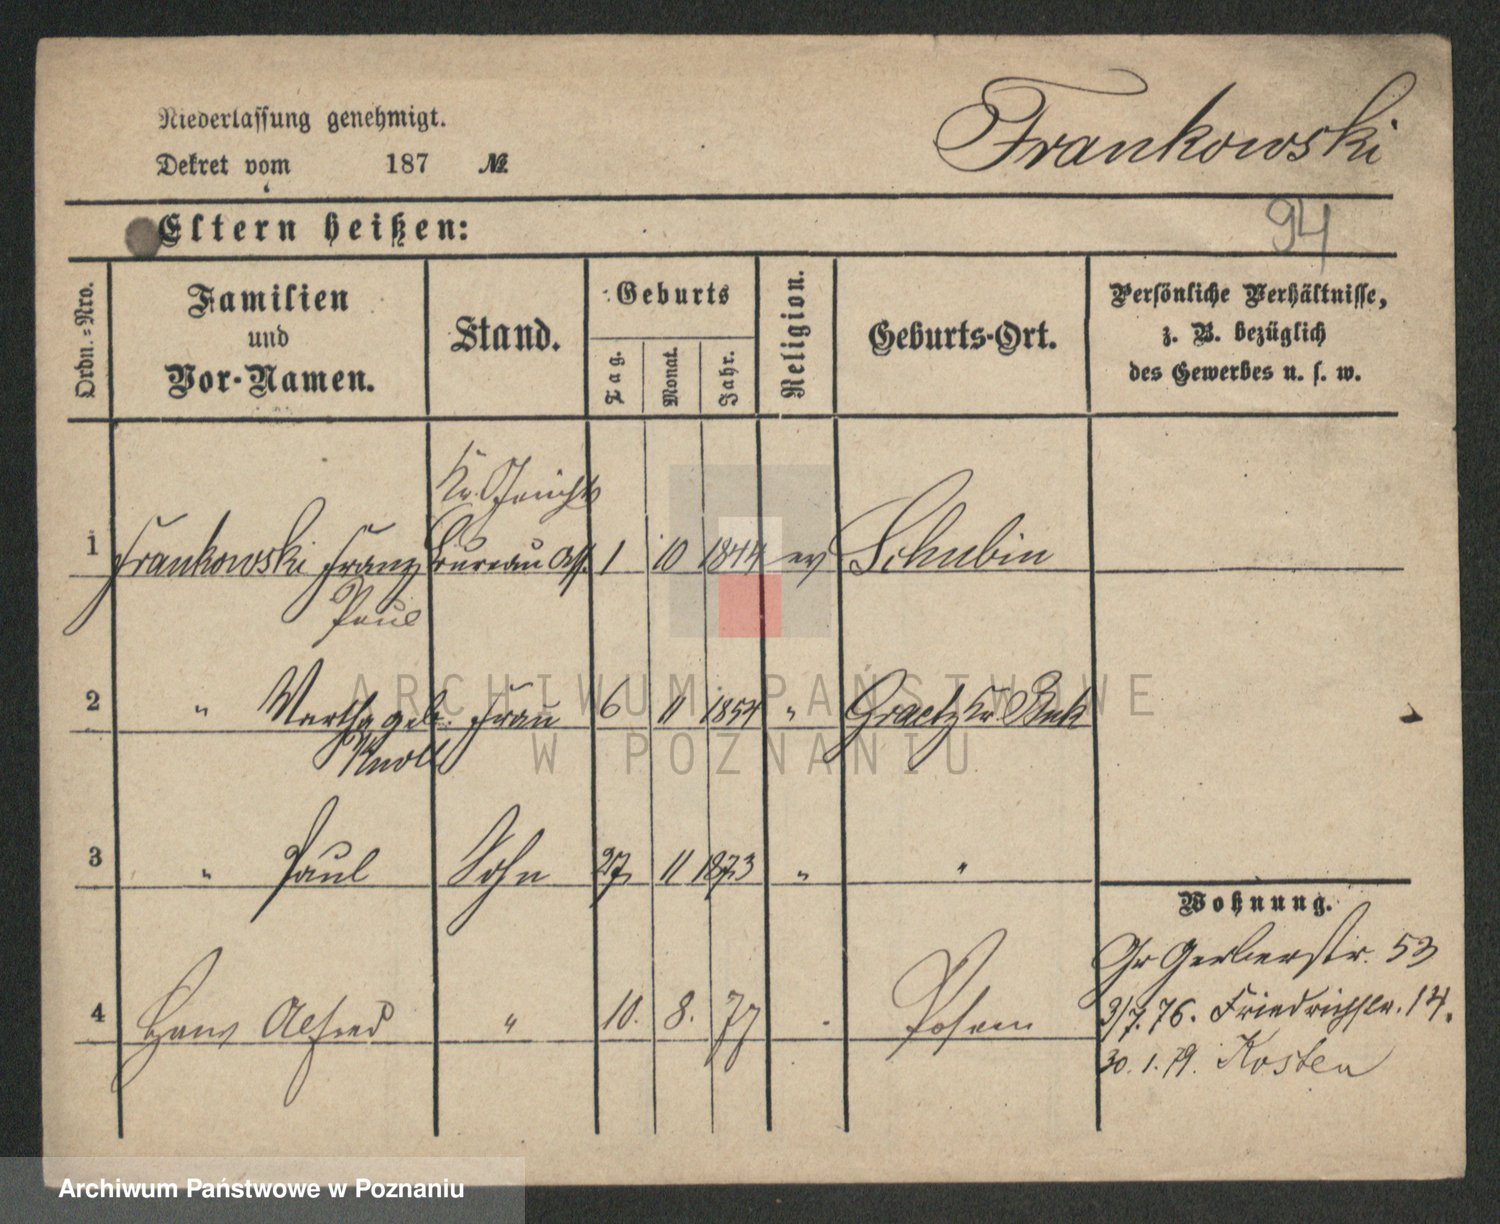 Niederlassung genehmigt.
Dekret vom 187 №
Frankowski
94
Eltern heißen:
Ordn.-Nro.
Familien
und
Vor-Namen.
Stand.
Geburts
Tag. Monat. Jahr.
Religion.
Geburts-Ort.
Persönliche Verhältnisse,
z. B. bezüglich
des Gewerbes u. s. w.
Kr. Gerichts
1 Frankowski Franz Bureau Ass. 1 10 1844 ev Schubin
Paul
2 " Bertha geb. Frau 6 11 1854 " Graetz Kr. Buk
Knoll
3 " Paul Sohn 27 11 1873 " "
Wohnung.
Gr Gerberstr. 53
4 Hans Alfred " 10. 8. 77 Posen 3/7. 76. Friedrichstr. 14.
30. 1. 79. Kosten
ARCHIWUM PAŃSTWOWE
W POZNANIU
Archiwum Państwowe w Poznaniu